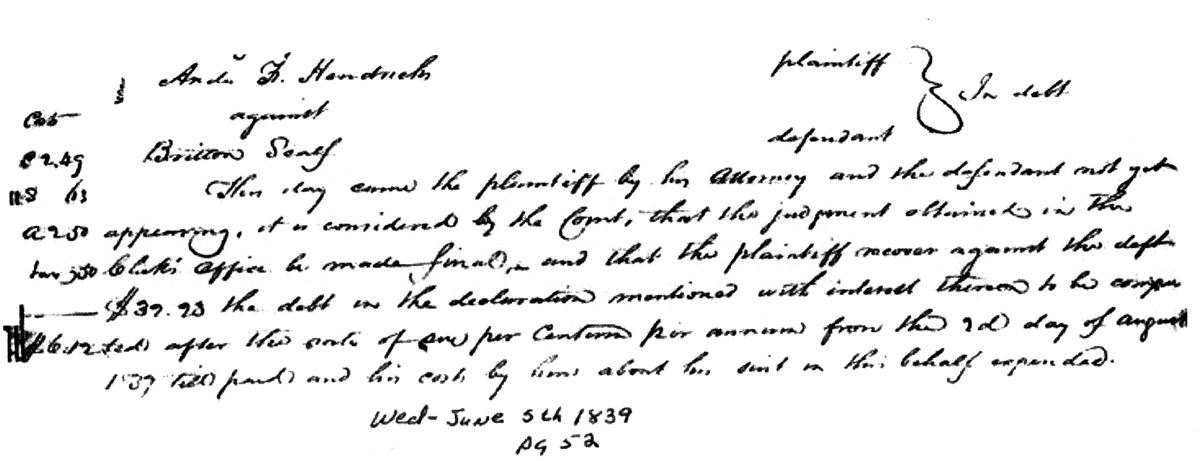 Andw F. Hendricks plaintiff
against In debt
Britton Scalf defendant
Cost
C 2.49
63
A 2.50
tax 50
$6.12
This day came the plaintiff by his Attorney and the defendant not yet
appearing, it is considered by the Court, that the judgment obtained in the
Clerk's office be made final, and that the plaintiff recover against the deft
$39.93 the debt in the declaration mentioned with interest thereon to be compu
ted after the rate of six per Centum per annum from the 2d day of August
1837 till paid and his costs by him about his suit in this behalf expended.
Wed- June 5th 1839
PG 52